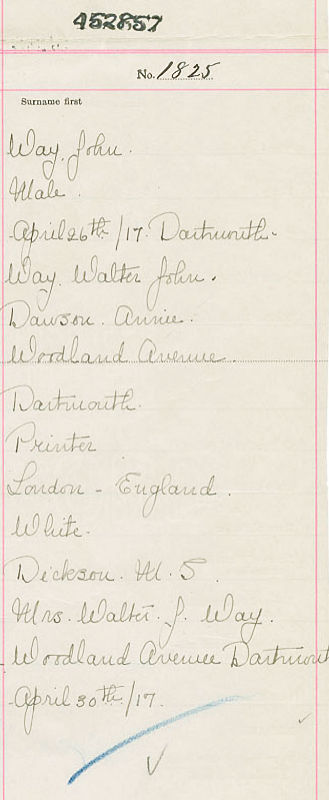 452857
No. 1825
Surname first
Way, John.
Male.
April 26th/17. Dartmouth.
Way, Walter John.
Dawson. Annie.
Woodland Avenue.
Dartmouth.
Printer
London - England.
White.
Dickson. M. S.
Mrs. Walter. J. Way.
Woodland Avenue Dartmout
April 30th/17.